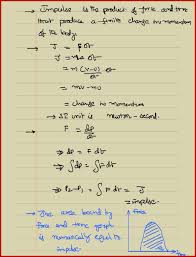 → Impulse is the product of force and time
that produce a finite change in momentum
of the body.
→ J = F Δt
J = m a Δt
= m (v-u) Δt / Δt
= mv - mu
= change in momentum
→ SI unit is newton-second.
→ F = dp/dt
⇒ dp = F dt
⇒ ∫dp = ∫F dt
⇒ P₂-P₁ = ∫F dt = J
= impulse
→ The area bound by
force and time graph
is numerically equal to
impulse.
Force
time